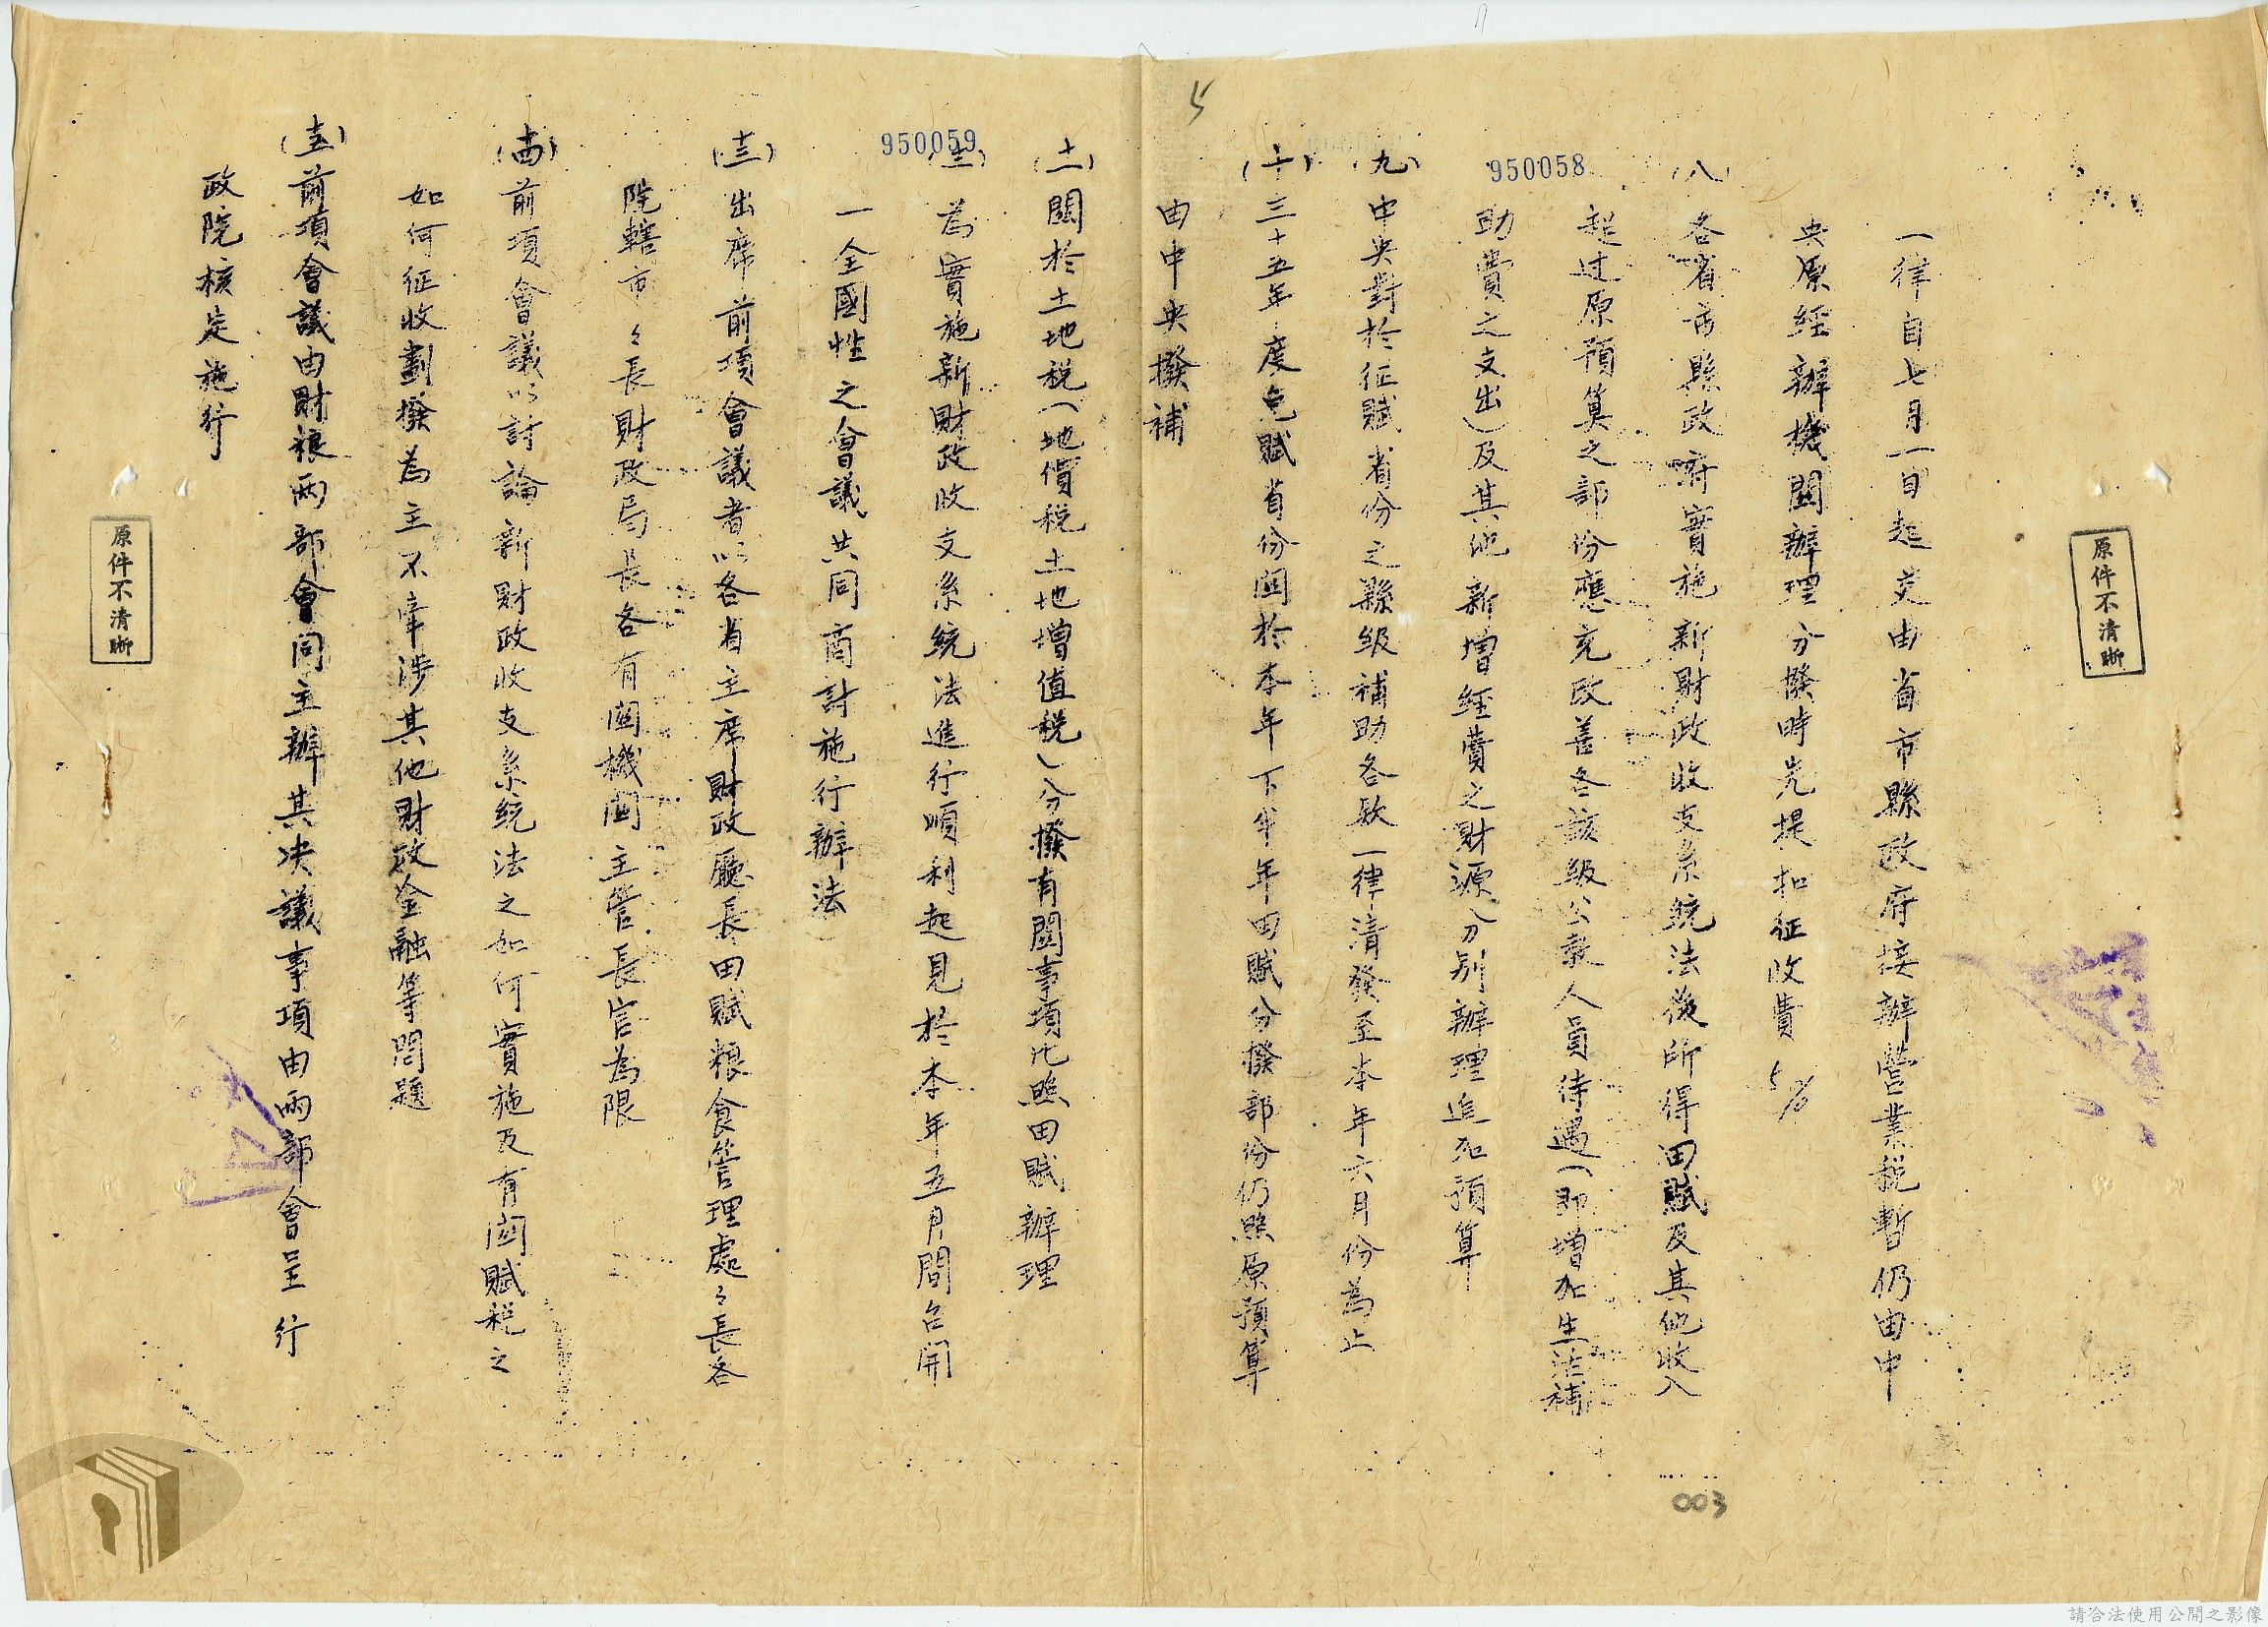 5
950058
一律自七月一日起交由省市縣政府接辦營業稅暫仍由中
央原經辦機關辦理分撥時先提扣征收費5%
(八)各省市縣政府實施新財政收支系統法後所得田賦及其他收入
超过原預算之部份應充改善各該級公教人員待遇(即增加生活補
助費之支出)及其他新增經費之財源分別辦理追加預算
(九)中央對於征賦省份之縣級補助各款一律清發至本年六月份為止
(十)三十五年度免賦省份関於本年下半年年田賦分撥部份仍照原預算
由中央撥補
950059
(十一)關於土地稅(地價稅土地增值稅)分撥有關事項比照田賦辦理
(十二)為實施新財政收支系統法進行順利起見於本年五月間召開
一全國性之會議共同商討施行辦法
(十三)出席前項會議者以各省主席財政廳長田賦粮食管理處々長各
院轄市々長財政局長各有関機関主管長官為限
(十四)前項會議以討論新財政收支系統法之如何實施及有関賦稅之
如何征收劃撥為主不牽涉其他財政金融等問題
(十五)前項會議由財粮兩部會同主辦其決議事項由兩部會呈行
政院核定施行
原件不清晰
原件不清晰
003
請合法使用公開之影像